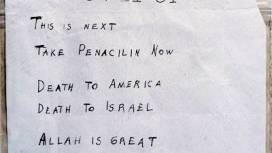 THIS IS NEXT
TAKE PENACILIN NOW
DEATH TO AMERICA
DEATH TO ISRAEL
ALLAH IS GREAT